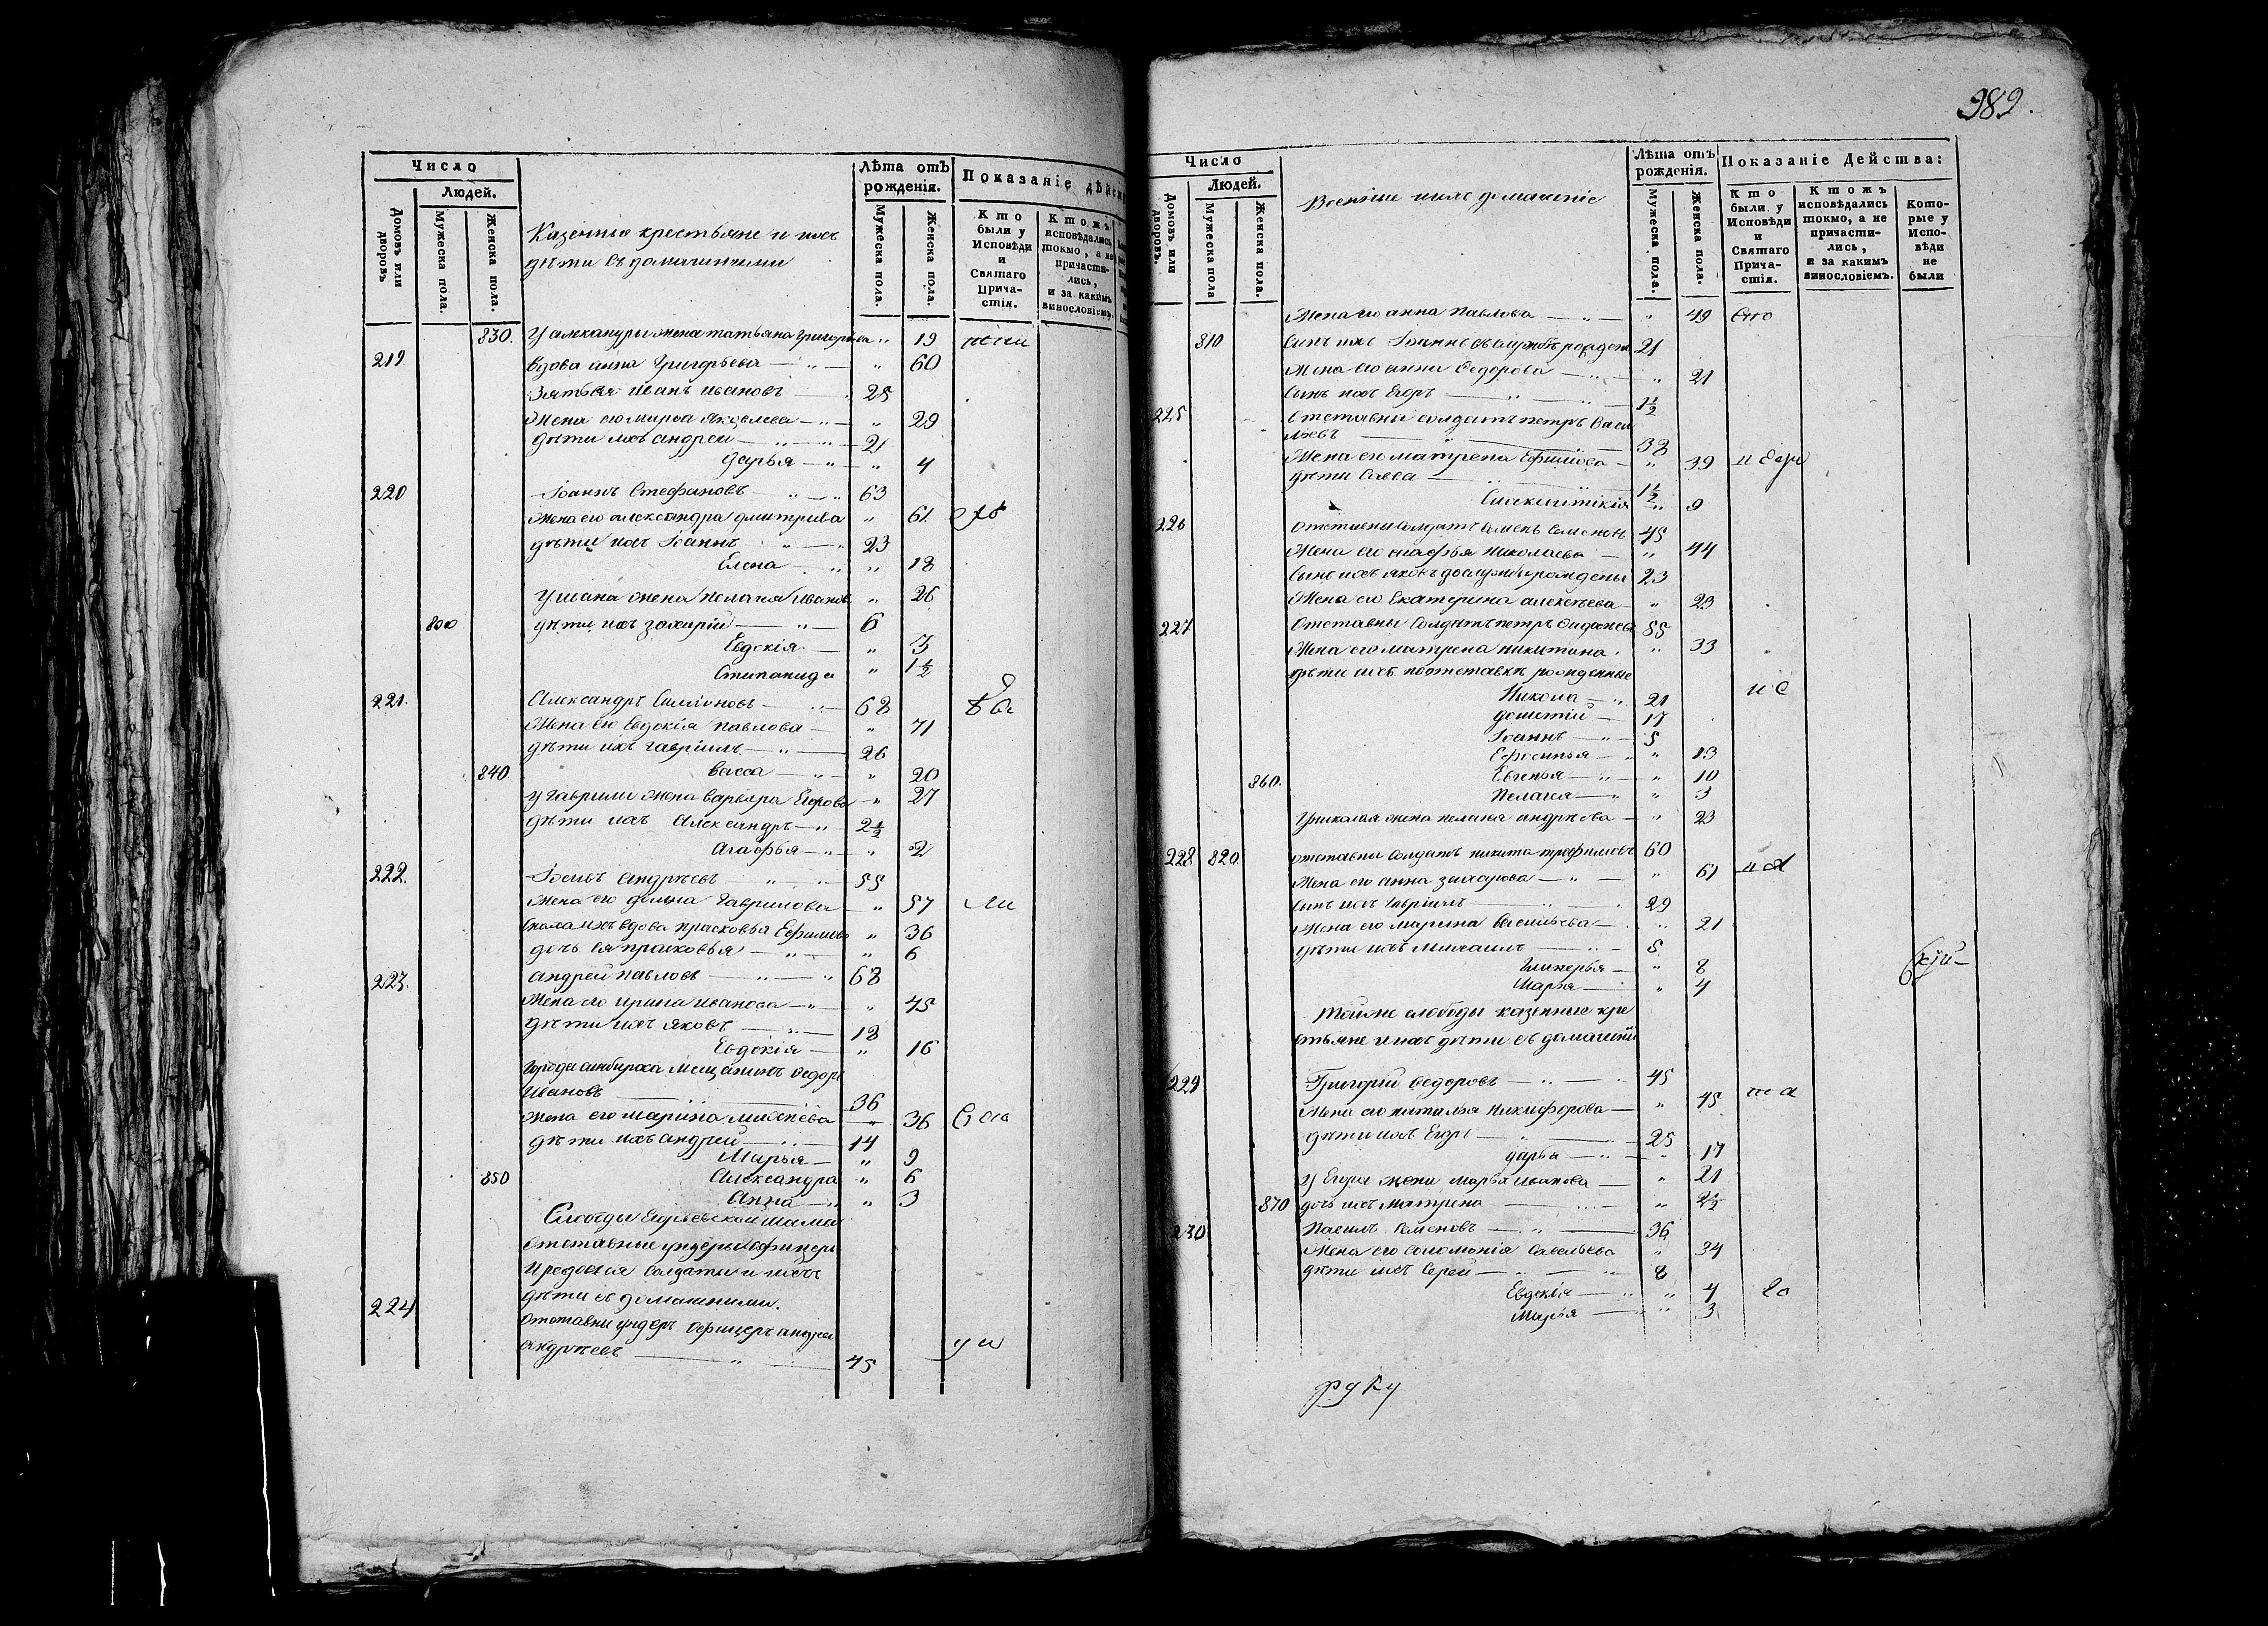 Число
Людей.
Домовъ или дворовъ
Мужеска пола.
Женска пола.
Казенныя крестьяне и ихъ
дѣти съ домашними
Лѣта отъ рожденія.
Мужеска пола.
Женска пола.
Показаніе дѣйс
Кто были у Исповѣди и Святаго Прича-стія.
Ктожъ исповѣдались токмо, а не причасти-лись, и за какимъ винословіемъ.
830. У александры жена татьяна григорьева " 19
219 вдова анна Григорьева — " — " 60
Зять ея иванъ ивановъ — 25
Жена его марья яковлева — " — " 29
дѣти ихъ андреи — " — " — 21
дарья — " — " 4
220 Іоаннъ Стефановъ " — " 63
Жена его александра дмитрева " 61
дѣти ихъ Іоаннъ " — " 23
Елена " " 18
У ивана жена пелагея иванов " 26
800 дѣти ихъ захарій — " — 6
Евдокія — " 3
Стипанида " 1½
221. Александръ Симіоновъ — " — 68
Жена его Евдокія павлова — " 71
дѣти ихъ гавріилъ — " — 26
840 васса — " — " 20
у гаврилы жена варвара Егорова — " 27
дѣти ихъ Александръ — " 2½
Агафья — " — " 2
222. Іосифъ Андрѣевъ — " — " 55
Жена его домна гаврилова — " 57
сноха ихъ вдова прасковья Ефимова " 36
дочь ея прасковья — " — " 6
223. андрей павловъ — " — " 68
Жена его ирина иванова — " — " 45
дѣти ихъ яковъ — " — 18
Евдокія — " 16
города симбирска мещанинъ федоръ
Ивановъ — " — 36
Жена его марина мисѣева — " 36
дѣти ихъ андрей — " — 14
Марья — " 9
850 Александра " 6
Анна — " " 3
Слободы Егорьевской
Отставные ундеръ офицеры
И рядовыя солдаты и ихъ
дѣти съ домашними.
224 отставны ундеръ офицеръ андреи
андрѣевъ — " — 45
989.
Число
Людей.
Домовъ или дворовъ.
Мужеска пола
Женска пола.
Военные ихъ домашніе
Лѣта отъ рожденія.
Мужеска пола.
Женска пола.
Показаніе Действа:
Кто были у Исповѣди и Святаго Прича-стія.
Ктожъ исповѣдались токмо, а не причасти-лись, и за какимъ винословіемъ.
Кото-рые у Испо-вѣди не были
Жена его анна павлова — " — " 49
810 Сынъ ихъ Іоаннъ въ службѣ рожденъ 21
Жена его анна федорова — " — " 21
Сынъ ихъ Егоръ — " — " — 1½
225 Отставны солдатъ петръ васи
льевъ — " — 38
Жена его матрена Ефимова — " 39
дѣти Савва — " — 1½
" 9
226 Отставны солдатъ Семенъ Семеновъ 45
Жена его агафья николаева — " 44
Сынъ ихъ яковъ до службы рожденъ 23
Жена его Екатерина алексѣева — " 23
227 Отставны Солдатъ петръ 55
Жена его матрена никитина " 33
дѣти ихъ по отставкѣ рожденные
Никола — " 21
17
Іоаннъ — " — 5
Ефросинья — " " 13
860. Евгенья — " — " 10
Пелагея — " " 3
У николая жена пелагея андрѣева — " 23
228 820 отставны солдатъ никита трофимовъ 60
Жена его анна захарова — " — " 61
сынъ ихъ гавріилъ " 29
Жена его марина васильева — " 21
дѣти ихъ михаилъ — " — 5
Гликерья — " 8
Марья — " 4
Той же слободы казенные кре
стьяне и ихъ дѣти съ домашними
229 Григорій федоровъ — " — " 45
Жена его наталья никифорова — " 45
дѣти ихъ Егоръ — " — 25
дарья — " — " 17
У Егора жена марья иванова — " 21
870 дочь ихъ матрена — " — " 2½
230 Павелъ Семеновъ — " — 36
Жена его соломонія савельева " 34
дѣти ихъ Сергей — " — " 8
Евдокія — " " 4
Марья — " " 3
руку